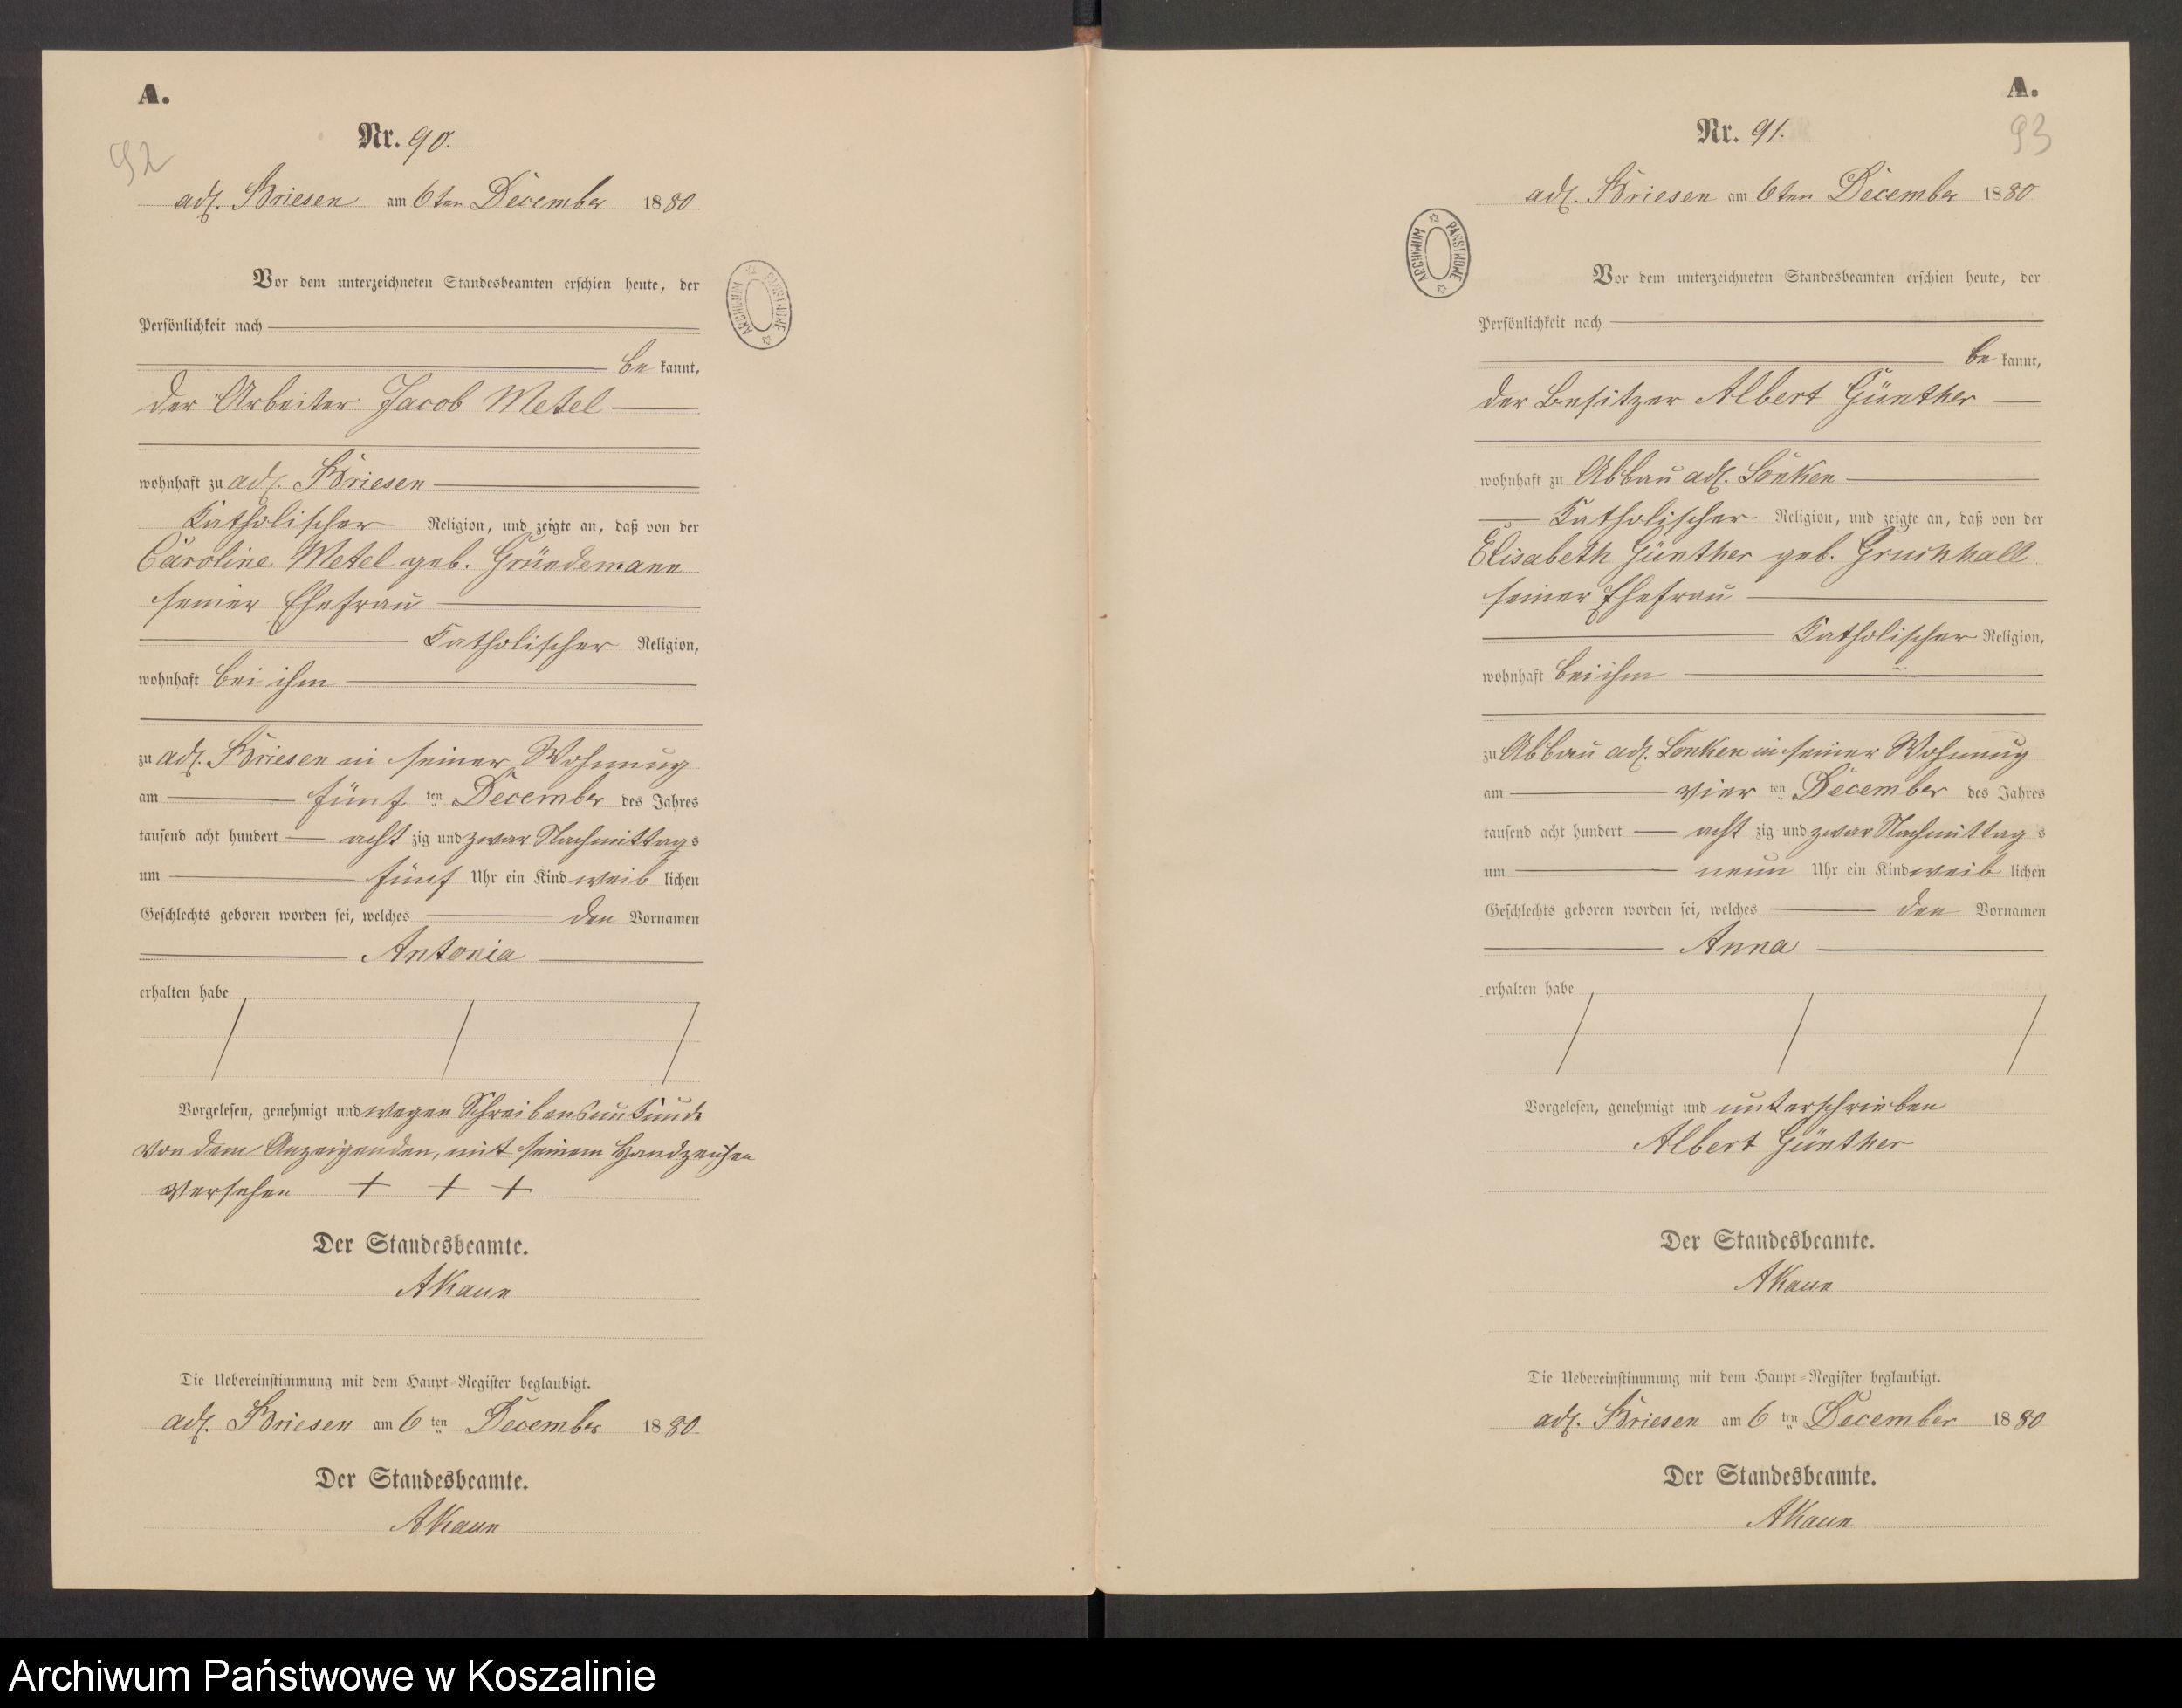 A.
92
Nr. 90.
adl. Briesen am 6ten December 1880
Vor dem unterzeichneten Standesbeamten erschien heute, der
Persönlichkeit nach
be kannt,
der Arbeiter Jacob Metel
wohnhaft zu adl. Briesen
Katholischer Religion, und zeigte an, daß von der
Caroline Metel geb. Gründemann
seiner Ehefrau
Katholischer Religion,
wohnhaft bei ihm
zu adl. Briesen in seiner Wohnung
am fünf ten December des Jahres
tausend acht hundert acht zig und zwar Nachmittag s
um fünf Uhr ein Kind weib lichen
Geschlechts geboren worden sei, welches den Vornamen
Antonia
erhalten habe
Vorgelesen, genehmigt und wegen Schreibensunkunde
von dem Anzeigenden, mit seinem Handzeichen
versehen + + +
Der Standesbeamte.
AKaun
Die Uebereinstimmung mit dem Haupt-Register beglaubigt.
adl. Briesen am 6 ten December 1880.
Der Standesbeamte.
AKaun
ARCHIWUM PAŃSTWOWE
A.
93
Nr. 91.
adl. Briesen am 6ten December 1880
ARCHIWUM PAŃSTWOWE
Vor dem unterzeichneten Standesbeamten erschien heute, der
Persönlichkeit nach
be kannt,
der Besitzer Albert Günther
wohnhaft zu Abbau adl. Lonken
Katholischer Religion, und zeigte an, daß von der
Elisabeth Günther geb. Gruchhall
seiner Ehefrau
Katholischer Religion,
wohnhaft bei ihm
zu Abbau adl. Lonken in seiner Wohnung
am vier ten December des Jahres
tausend acht hundert acht zig und zwar Nachmittag s
um neun Uhr ein Kind weib lichen
Geschlechts geboren worden sei, welches den Vornamen
Anna
erhalten habe
Vorgelesen, genehmigt und unterschrieben
Albert Günther
Der Standesbeamte.
AKaun
Die Uebereinstimmung mit dem Haupt-Register beglaubigt.
adl. Briesen am 6 ten December 1880
Der Standesbeamte.
AKaun
Archiwum Państwowe w Koszalinie